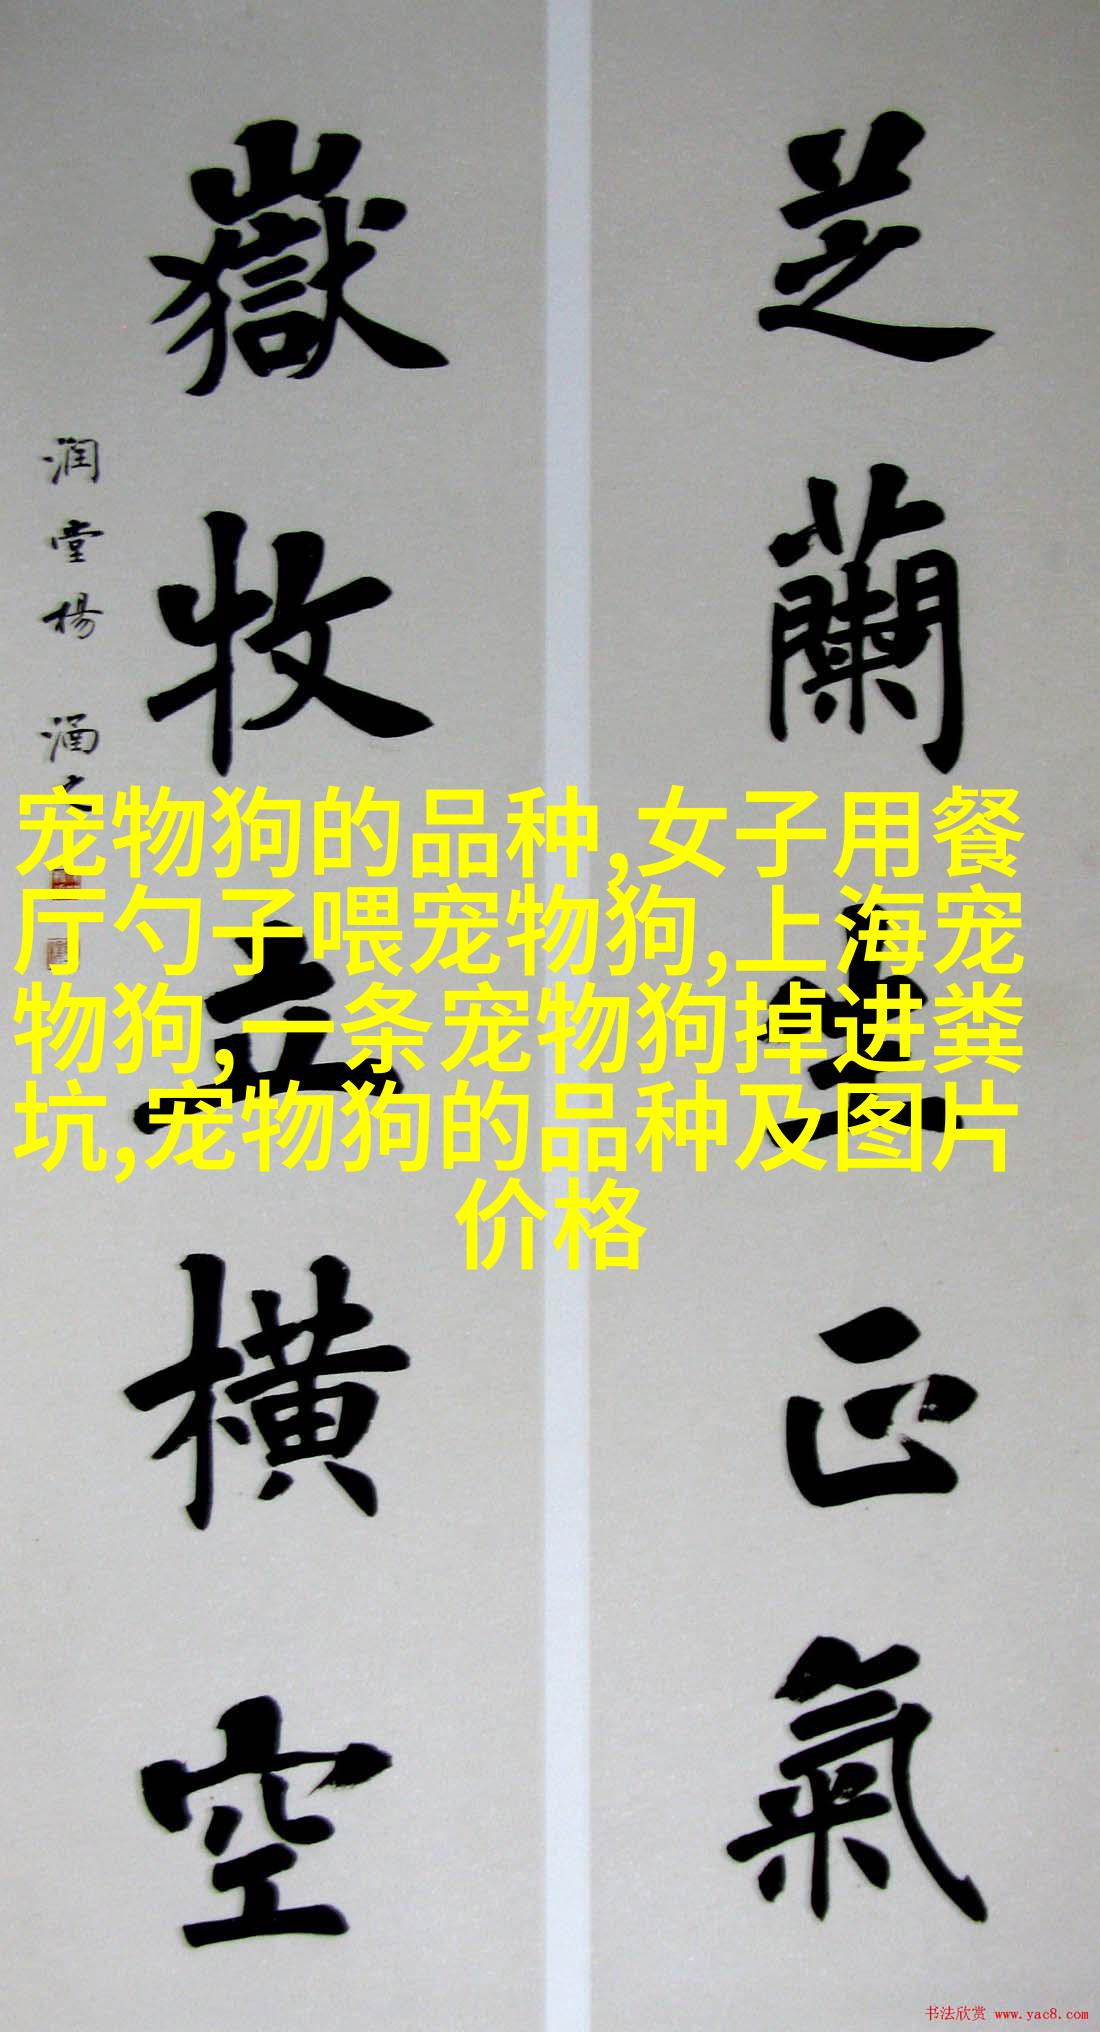 芝蘭生正氣
嶽牧立橫空
润堂楊涵之
宠物狗的品种,女子用餐
厅勺子喂宠物狗,上海宠
物狗,一条宠物狗掉进粪
坑,宠物狗的品种及图片
价格
书法欣赏 www.yac8.com